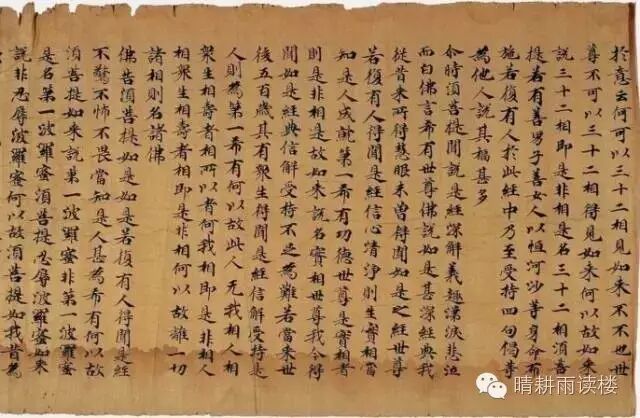 於意云何可以三十二相見如来不不也世
尊不可以三十二相得見如来何以故如来
説三十二相即是非相是名三十二相湏菩
提若有善男子善女人以恒河沙等身命布
施若復有人於此經中乃至受持四句偈等
為他人説其福甚多
尒時湏菩提聞説是經深解義趣涕淚悲泣
而白佛言希有世尊佛説如是甚深經典我
從昔来所得慧眼未曾得聞如是之經世尊
若復有人得聞是經信心清淨則生實相當
知是人成就第一希有功德世尊是實相者
則是非相是故如来説名實相世尊我今得
聞如是經典信解受持不足為難若當来世
後五百歲其有衆生得聞是經信解受持是
人則為第一希有何以故此人无我相人相
衆生相壽者相所以者何我相即是非相人
相衆生相壽者相即是非相何以故離一切
諸相則名諸佛
佛告湏菩提如是如是若復有人得聞是經
不驚不怖不畏當知是人甚為希有何以故
湏菩提如来説第一波羅蜜非第一波羅蜜
是名第一波羅蜜湏菩提忍辱波羅蜜如来
説非忍辱波羅蜜何以故湏菩提如我昔為
晴耕雨读楼